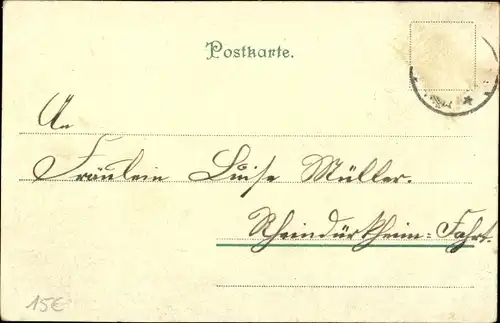 Postkarte.
An
Fräulein Luise Müller.
Rheindürkheim-Fahrt.
15€